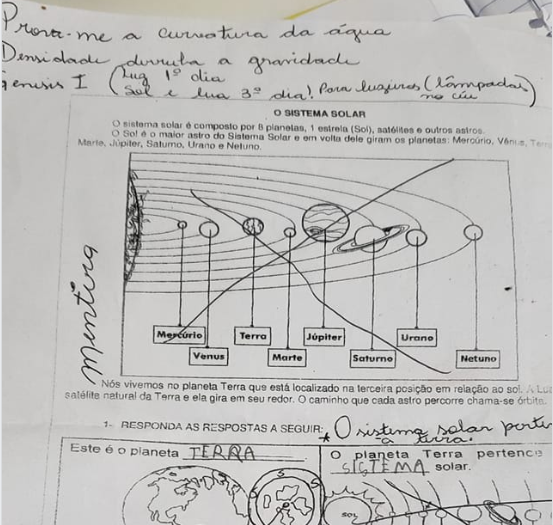 Prova-me a curvatura da água
Densidade derruba a gravidade
Genesis I (Luz 1º dia
Sol e lua 3º dia! Para luzeiros (lâmpadas
no céu
O SISTEMA SOLAR
O sistema solar é composto por 8 planetas, 1 estrela (Sol), satélites e outros astros.
O Sol é o maior astro do Sistema Solar e em volta dele giram os planetas: Mercúrio, Vênus, Terra
Marte, Júpiter, Saturno, Urano e Netuno.
Mentira
Mercúrio Terra Júpiter Urano
Vênus Marte Saturno Netuno
Nós vivemos no planeta Terra que está localizado na terceira posição em relação ao sol. A Lua
satélite natural da Terra e ela gira em seu redor. O caminho que cada astro percorre chama-se órbita.
1- RESPONDA AS RESPOSTAS A SEGUIR:
* O sistema solar perte
a terra.
Este é o planeta TERRA
O planeta Terra pertence
SISTEMA solar.
SOL